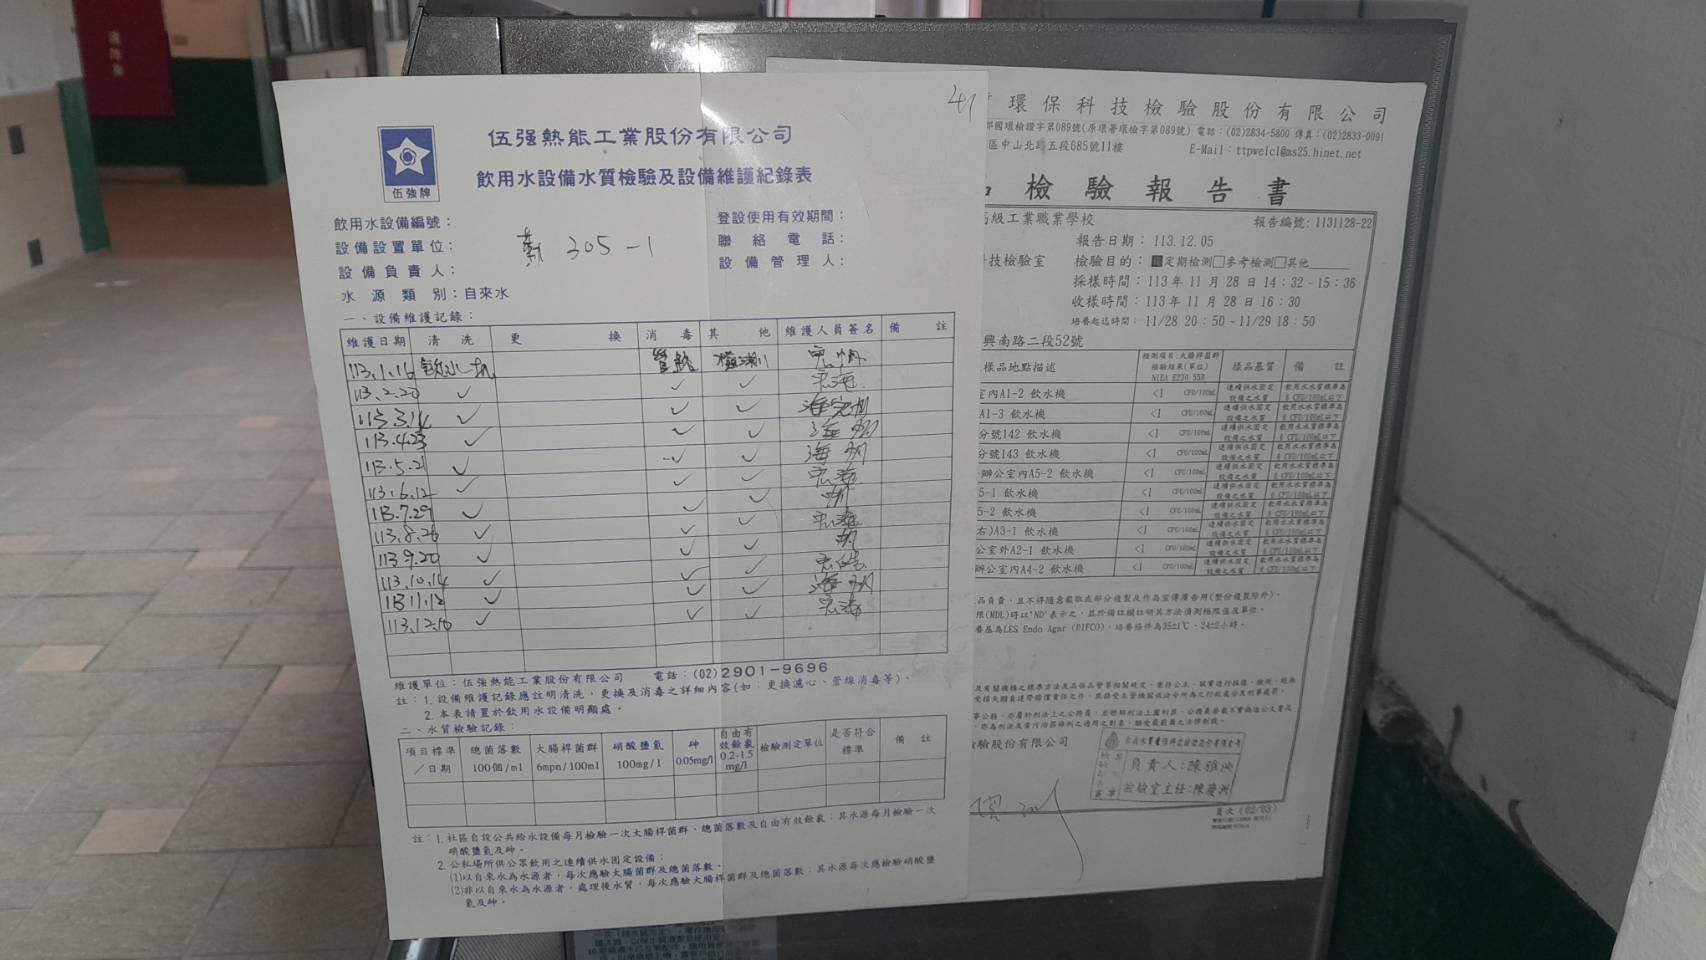 伍強牌
伍强熱能工業股份有限公司
飲用水設備水質檢驗及設備維護紀錄表
飲用水設備編號：
設備設置單位：
設備負責人：
水源類別：自來水
305-1
登設使用有效期間：
聯絡電話：
設備管理人：
一、設備維護記錄：
維護日期 清洗 更換 消毒 其他 維護人員簽名 備註
113.1.16 飲水機 管路
113.2.20 ✓ ✓ ✓
113.3.14 ✓ ✓ ✓
113.4.23 ✓ ✓ ✓
113.5.21 ✓ ✓ ✓
113.6.12 ✓ ✓ ✓
113.7.29 ✓ ✓ ✓
113.8.26 ✓ ✓ ✓
113.9.20 ✓ ✓ ✓
113.10.14 ✓ ✓ ✓
113.11.12 ✓ ✓ ✓
113.12.16 ✓ ✓ ✓
維護單位：伍強熱能工業股份有限公司 電話：(02)2901-9696
註：1.設備維護記錄應註明清洗，更換及消毒之詳細內容(如：更換濾心、管線消毒等)、
2.本表請置於飲用水設備明顯處。
二、水質檢驗記錄：
項目標準／日期 總菌落數100個/ml 大腸桿菌群6mpn/100ml 硝酸鹽氮100mg/l 砷0.05mg/l 自由有效餘氯0.2-1.5mg/l 檢驗測定單位 是否符合標準 備註
註：1.社區自設公共給水設備每月檢驗一次大腸桿菌群、總菌落數及自由有效餘氯；其水源每月檢驗一次
硝酸鹽氮及砷。
2.公私場所供公眾飲用之連續供水固定設備；
(1)以自來水為水源者，每次應驗大腸菌群及總菌落數。
(2)非以自來水為水源者，處理後水質，每次應驗大腸桿菌群及總菌落數；其水源每次應檢驗硝酸鹽
氮及砷。
41
環保科技檢驗股份有限公司
國環檢證字第089號(原環署環檢字第089號) 電話：(02)2834-5800 傳真：(02)2833-0091
區中山北路五段685號11樓 E-Mail：ttpwelcl@ms25.hinet.net
檢驗報告書
高級工業職業學校 報告編號：1131128-22
報告日期：113.12.05
科技檢驗室 檢驗目的：■定期檢測□參考檢測□其他
採樣時間：113年11月28日14：32-15：36
收樣時間：113年11月28日16：30
培養起迄時間：11/28 20：50~11/29 18：50
興南路二段52號
樣品地點描述 檢測項目:大腸桿菌群 檢驗結果(單位) NIEA E230.55B 樣品基質 備註
室內A1-2 飲水機 <1 CFU/100mL 連續供水固定設備之水質 飲用水水質標準為6 CFU/100mL以下
A1-3 飲水機 <1 CFU/100mL 連續供水固定設備之水質 飲用水水質標準為6 CFU/100mL以下
分號142 飲水機 <1 CFU/100mL 連續供水固定設備之水質 飲用水水質標準為6 CFU/100mL以下
分號143 飲水機 <1 CFU/100mL 連續供水固定設備之水質 飲用水水質標準為6 CFU/100mL以下
辦公室內A5-2 飲水機 <1 CFU/100mL 連續供水固定設備之水質 飲用水水質標準為6 CFU/100mL以下
5-1 飲水機 <1 CFU/100mL 連續供水固定設備之水質 飲用水水質標準為6 CFU/100mL以下
5-2 飲水機 <1 CFU/100mL 連續供水固定設備之水質 飲用水水質標準為6 CFU/100mL以下
右)A3-1 飲水機 <1 CFU/100mL 連續供水固定設備之水質 飲用水水質標準為6 CFU/100mL以下
公室外A2-1 飲水機 <1 CFU/100mL 連續供水固定設備之水質 飲用水水質標準為6 CFU/100mL以下
辦公室內A4-2 飲水機 <1 CFU/100mL 連續供水固定設備之水質 飲用水水質標準為6 CFU/100mL以下
品負責，且不得隨意截取或部分複製及作為宣傳廣告用(整份複製除外)。
限(MDL)時以"ND"表示之，並於備註欄註明其方法偵測極限值及單位。
養基為LES Endo Agar (DIFCO)，培養條件為35±1℃、24±2小時。
檢驗股份有限公司
負責人:陳雅
檢驗室主任:陳慶
頁次(02/03)